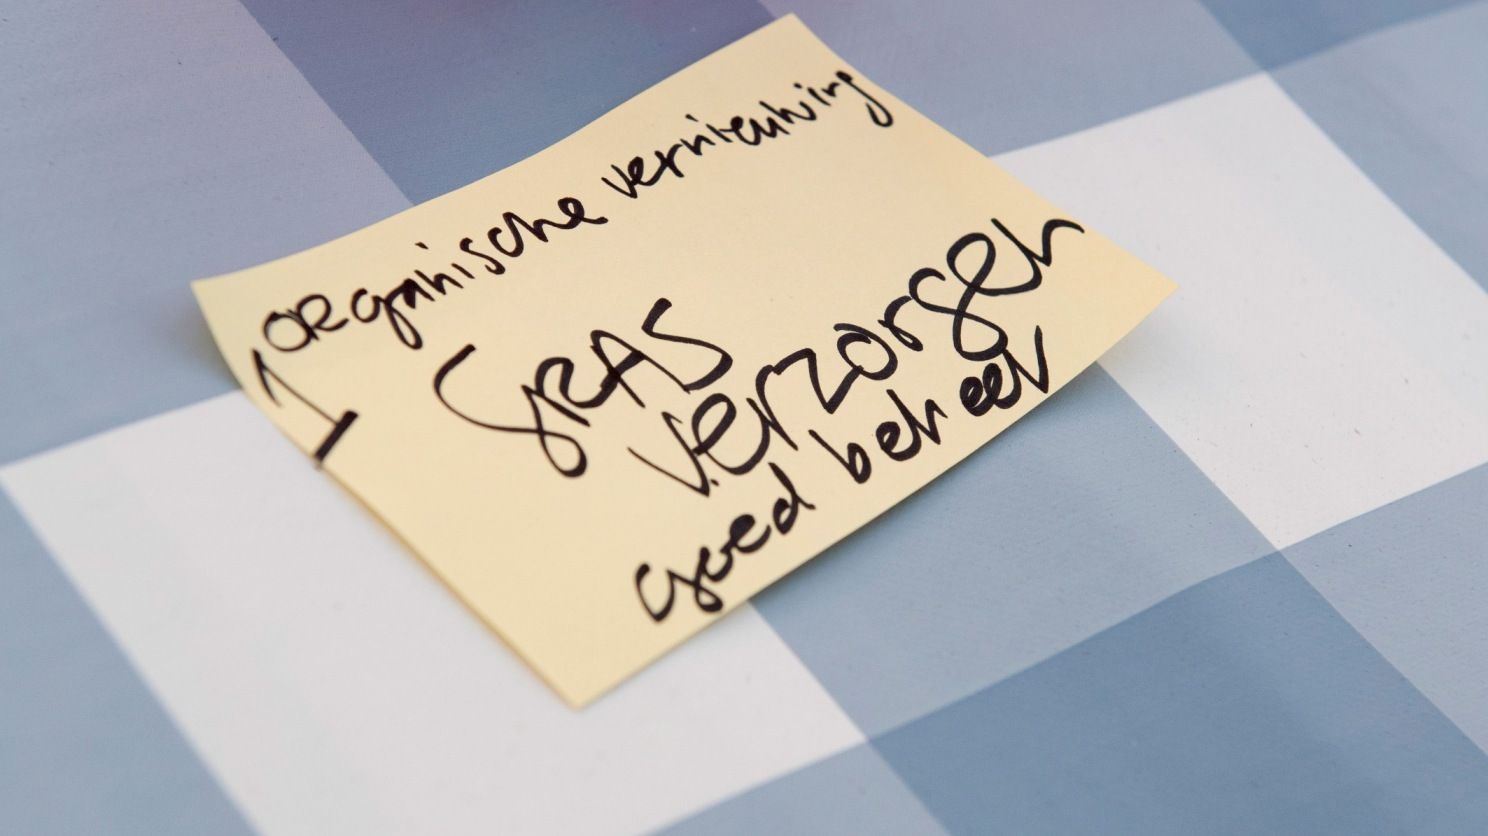 1 organische vernieuwing
GRAS
verzorgen
goed beheer